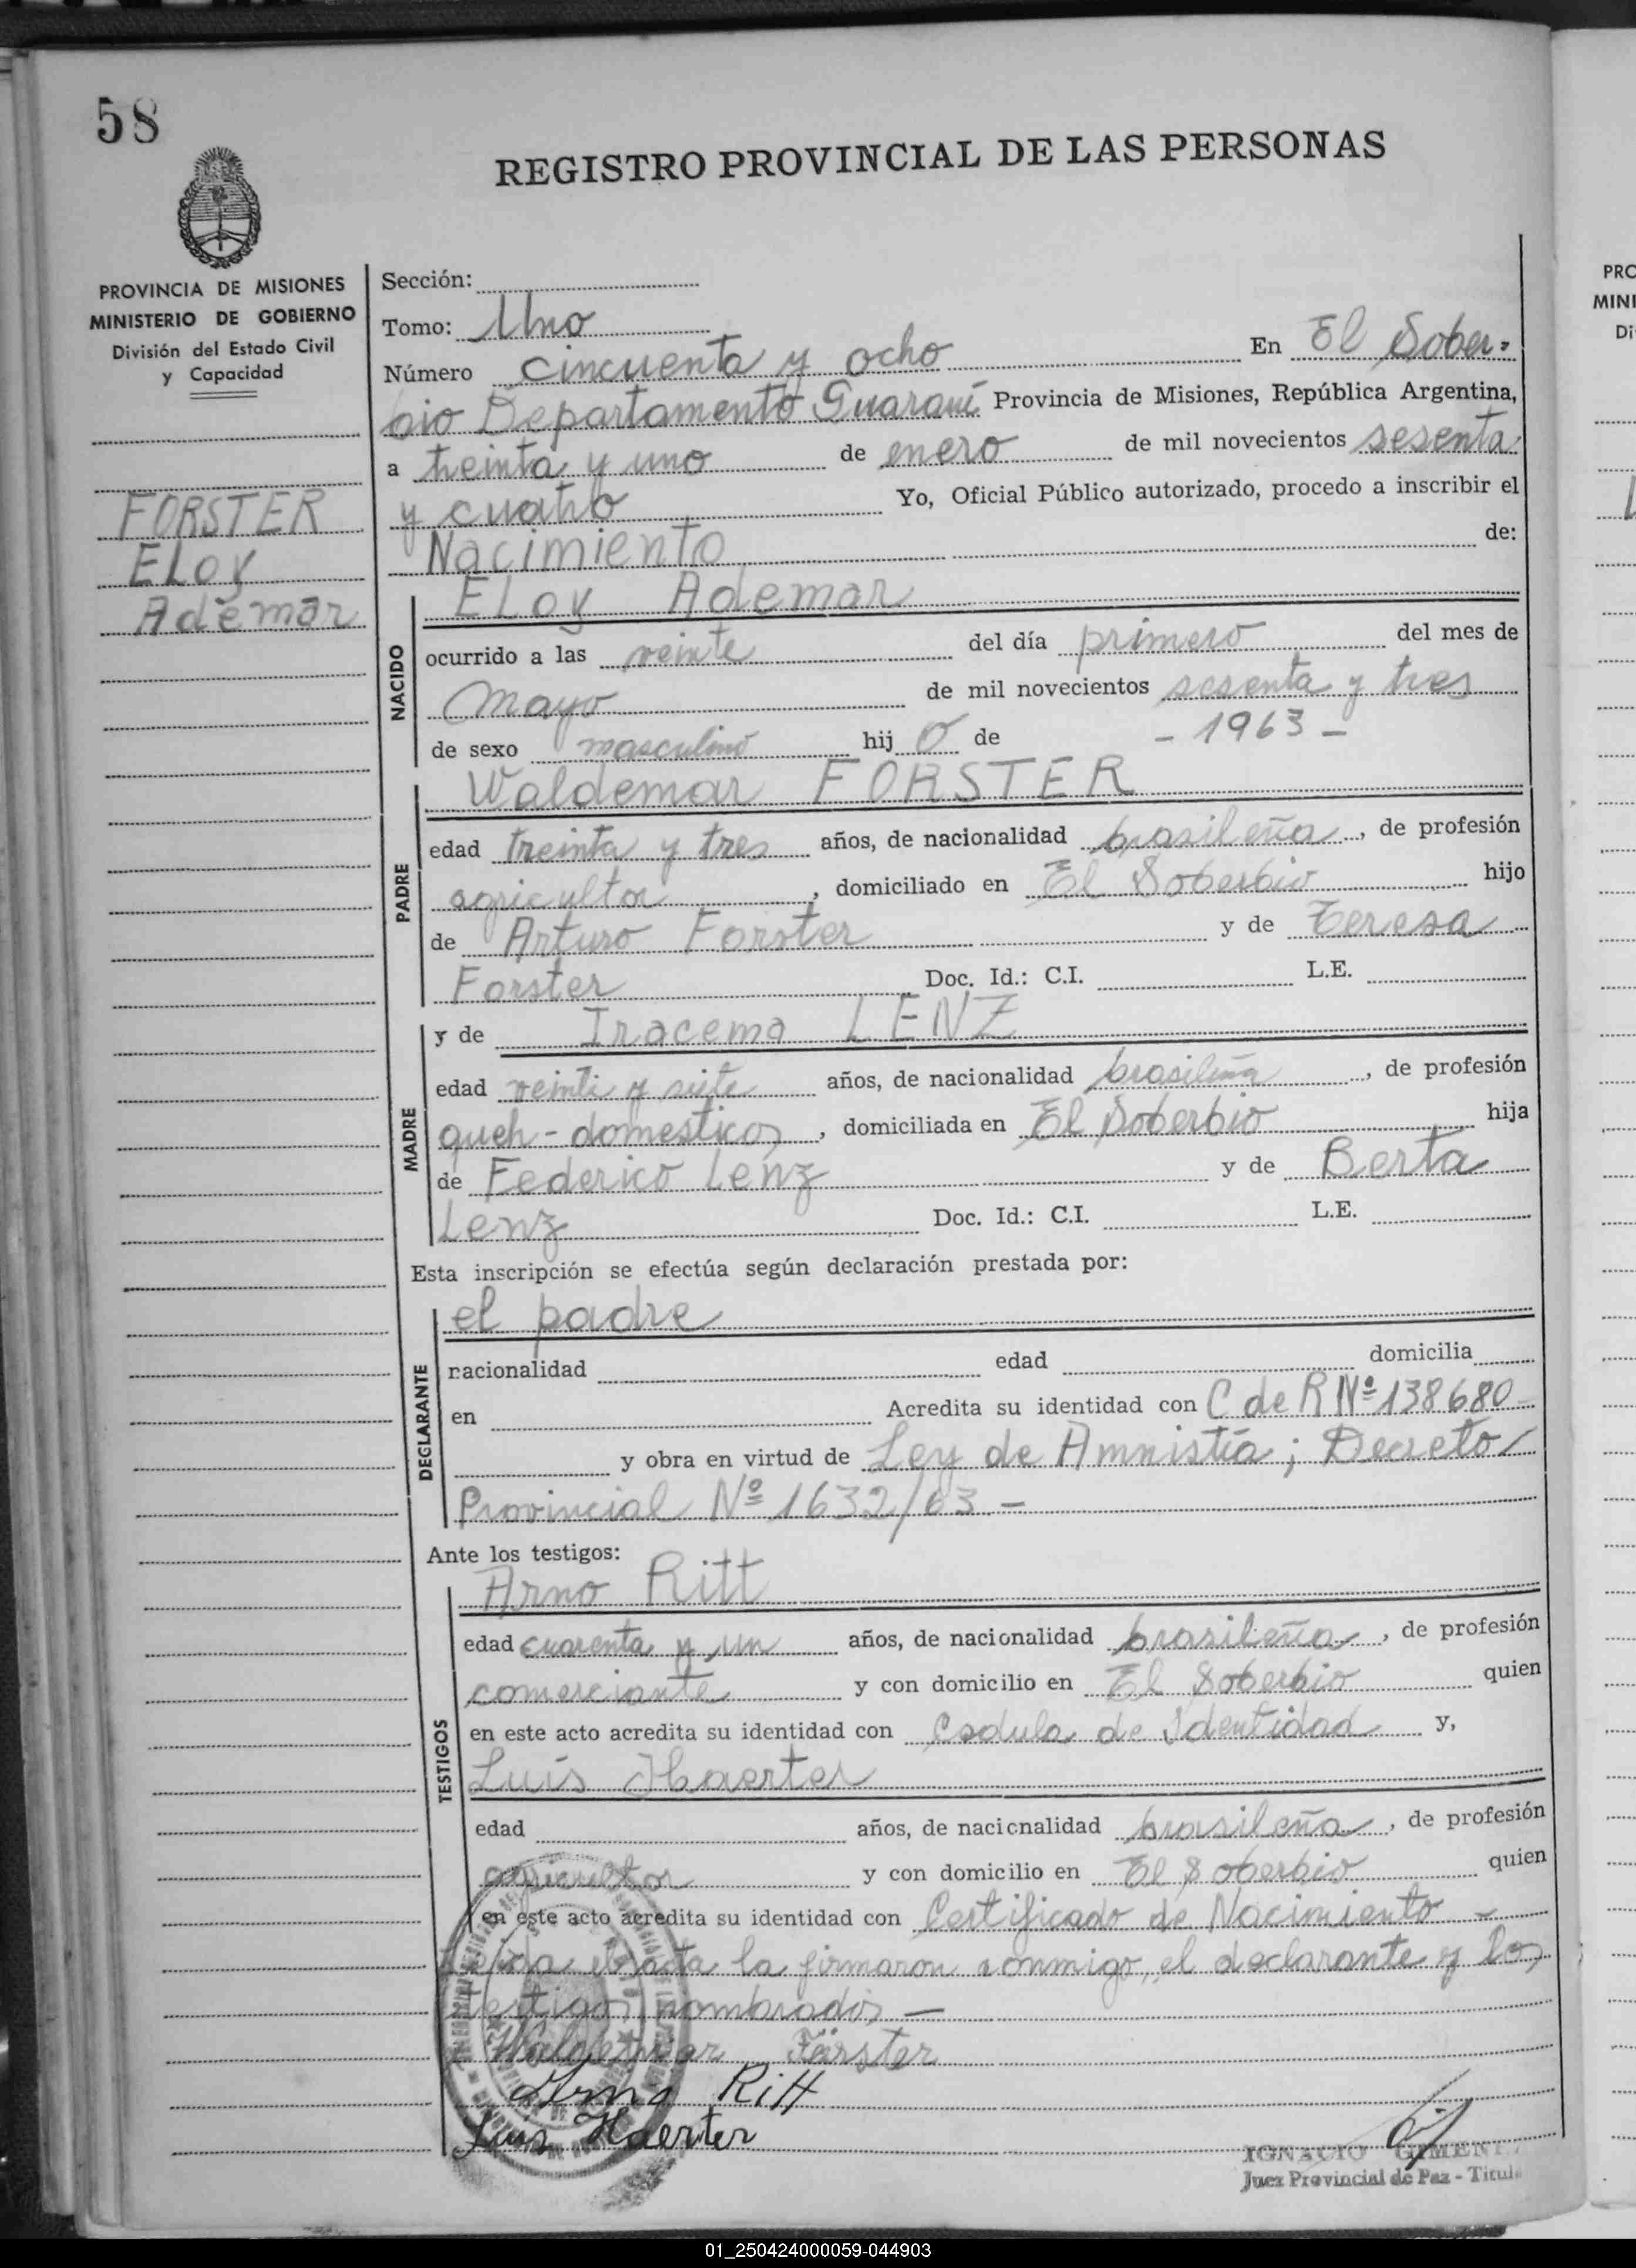 58
REGISTRO PROVINCIAL DE LAS PERSONAS
PROVINCIA DE MISIONES
MINISTERIO DE GOBIERNO
División del Estado Civil
y Capacidad
FORSTER
ELOY
Ademar
Sección:
Tomo: Uno
Número cincuenta y ocho En El Sober-
bio Departamento Guaraní Provincia de Misiones, República Argentina,
a treinta y uno de enero de mil novecientos sesenta
y cuatro Yo, Oficial Público autorizado, procedo a inscribir el
Nacimiento de:
ELOY Ademar
NACIDO
ocurrido a las veinte del día primero del mes de
Mayo de mil novecientos sesenta y tres
de sexo masculino hij o de - 1963 -
Waldemar FORSTER
PADRE
edad treinta y tres años, de nacionalidad brasileña, de profesión
agricultor, domiciliado en El Soberbio hijo
de Arturo Forster y de Teresa
Forster Doc. Id.: C.I. L.E.
y de Iracema LENZ
MADRE
edad veinti y siete años, de nacionalidad brasileña, de profesión
queh-domesticos, domiciliada en El Soberbio hija
de Federico Lenz y de Berta
Lenz Doc. Id.: C.I. L.E.
Esta inscripción se efectúa según declaración prestada por:
el padre
DECLARANTE
nacionalidad edad domicilia
en Acredita su identidad con C de R Nº 138680
y obra en virtud de Ley de Amnistía; Decreto
Provincial Nº 1632/63.-
Ante los testigos:
Arno Ritt
TESTIGOS
edad cuarenta y un años, de nacionalidad brasileña, de profesión
comerciante y con domicilio en El Soberbio quien
en este acto acredita su identidad con Cedula de Identidad y,
Luis Haerter
edad años, de nacionalidad brasileña, de profesión
agricultor y con domicilio en El Soberbio quien
en este acto acredita su identidad con Certificado de Nacimiento -
Leida el acta la firmaron conmigo, el declarante y los
testigos nombrados -
Waldemar Förster
Arno Ritt
Luis Haerter
IGNACIO GIMENEZ
Juez Provincial de Paz - Titula
PRO
MINI
Di
01_250424000059-044903